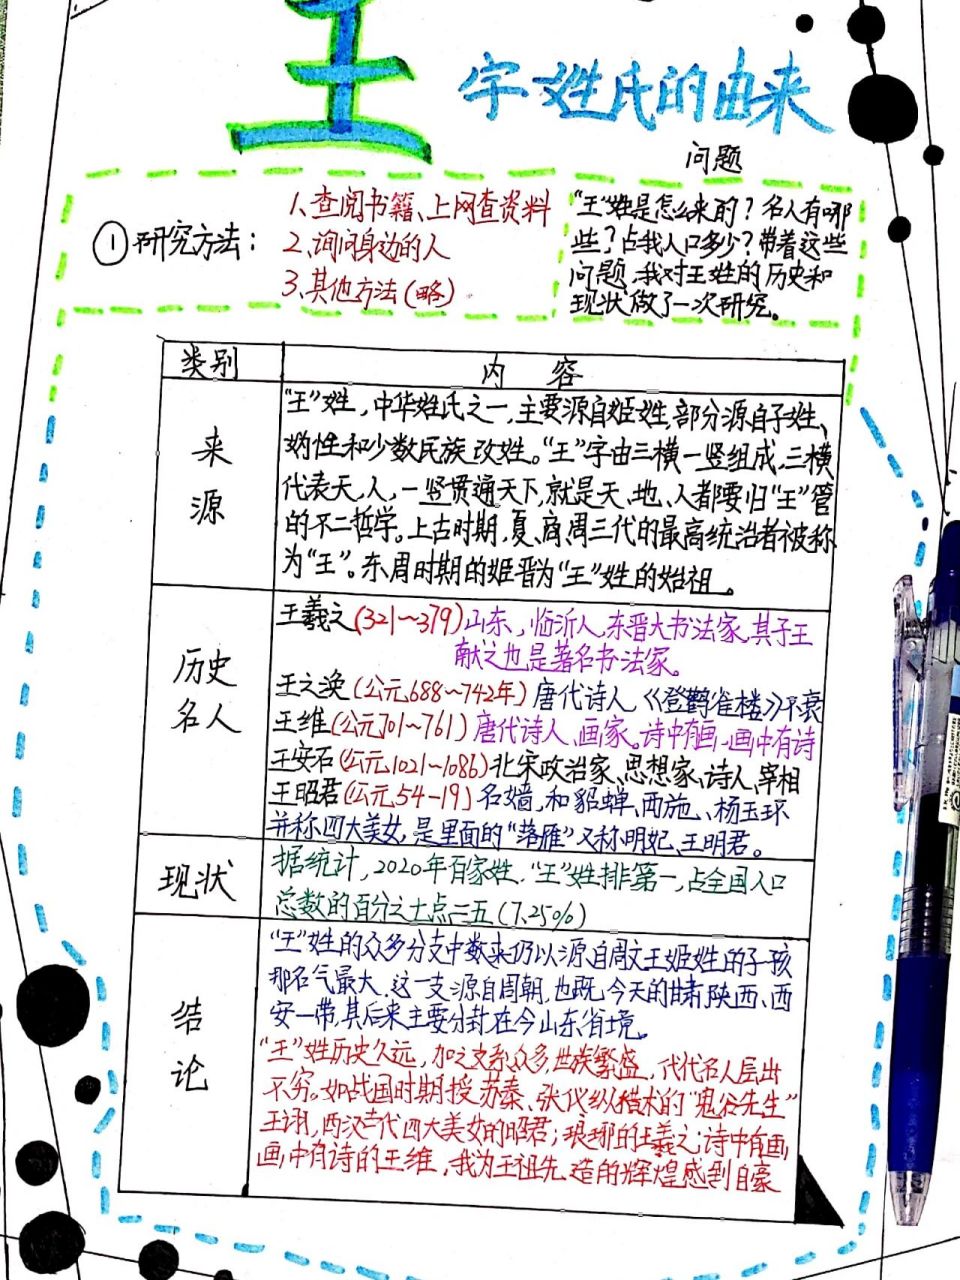 王
字姓氏的由来
问题
①研究方法：
1、查阅书籍、上网查资料
2、询问身边的人
3、其他方法(略)
"王"姓是怎么来的？名人有哪
些？占我人口多少？带着这些
问题,我对王姓的历史和
现状做了一次研究。
类别
内 容
来
源
"王"姓，中华姓氏之一，主要源自姬姓,部分源自子姓、
妫性和少数民族改姓。"王"字由三横一竖组成,三横
代表天,人,一竖贯通天下,就是天、地、人都要归"王"管
的不二哲学。上古时期,夏、商、周三代的最高统治者被称
为"王"。东周时期的姬晋为"王"姓的始祖。
历史
名人
王羲之(321~379)山东，临沂人,东晋大书法家。其子王
献之也是著名书法家。
王之涣(公元688~742年)唐代诗人《登鹳雀楼》不衰
王维(公元701~761)唐代诗人、画家。诗中有画,画中有诗
王安石(公元1021~1086)北宋政治家、思想家、诗人、宰相
王昭君(公元54-19)名嫱,和貂蝉、西施、杨玉环
并称四大美女,是里面的"落雁"又称明妃、王明君。
现状
据统计,2020年百家姓,"王"姓排第一,占全国人口
总数的百分之七点二五(7.25%)
结
论
"王"姓的众多分支中数来仍以源自周文王姬姓的子孩
那名气最大,这一支源自周朝,也既今天的甘肃,陕西、西
安一带,其后来主要分封在今山东省境。
"王"姓历史久远,加之支系众多,世族繁盛,代代名人层出
不穷。如战国时期授苏秦、张仪纵横术的"鬼谷先生"
王诩,西汉古代四大美女的昭君;琅琊的王羲之;诗中有画,
画中有诗的王维,我为王祖先造的辉煌感到自豪